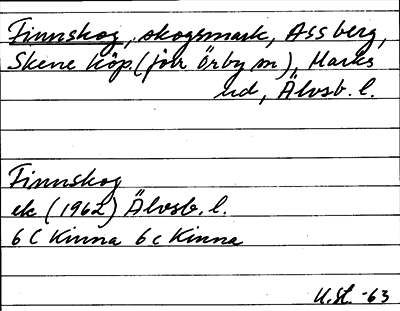 Finnskog, skogsmark, Assberg,
Skene köp. (jole Örby sn), Marks
hd, Älvsb. l.
Finnskog
ek (1962) Älvsb. l.
6 C Kinna 6 c Kinna
U.St. -63